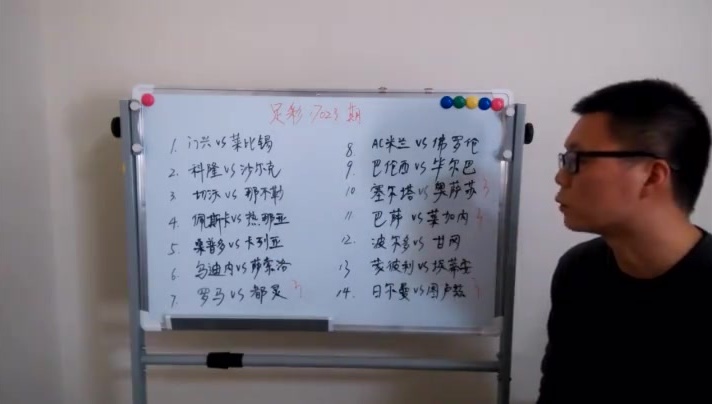 足彩17023期
1. 门兴VS莱比锡
2. 科隆VS沙尔克
3. 切沃VS那不勒
4. 佩斯卡VS热那亚
5. 桑普多VS卡利亚
6. 乌迪内VS萨索洛
7. 罗马VS都灵 3
8. AC米兰VS佛罗伦
9. 巴伦西VS毕尔巴
10 塞尔塔VS奥萨苏 3
11. 巴萨VS莱加内 3
12. 波尔多VS甘冈
13 蒙彼利VS埃蒂安
14. 日尔曼VS图卢兹 3